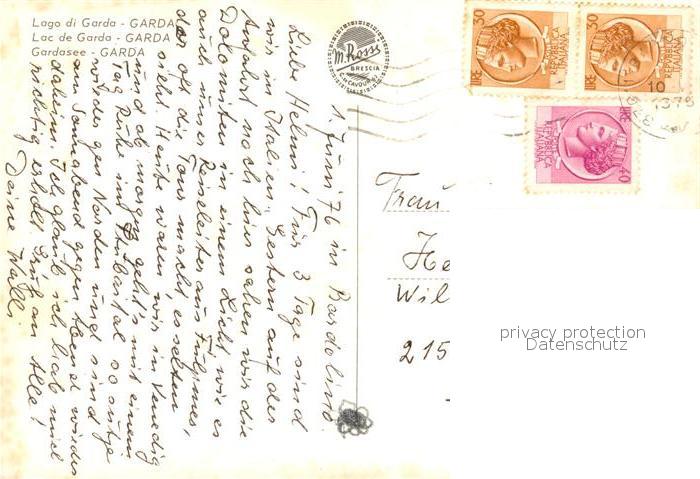 Lago di Garda - GARDA
Lac de Garda - GARDA
Gardasee - GARDA
M. Rossi
BRESCIA
1. Juni 76 in Bardolino.
Liebe Helmi! Für 3 Tage sind
wir in Italien. Gestern auf der
Anfahrt nach hier sahen wir die
Dolomiten in einem Licht wie es
auch unser Reiseleiter aus Fulpmes,
der oft die Tour macht, es selten
sieht. Heute waren wir in Venedig
und ab morgen geht's mit einem
Tag Ruhe im Stubaital so
wieder gen Norden und sind
am Sonnabend gegen Abend wieder
daheim. Ich glaub ich hab mich
richtig erholt. Gruß an Alle!
Deine Walli.
Frau
He
Wil
215
LIRE 30
REPUBBLICA
ITALIANA
LIRE 30
REPUBBLICA
ITALIANA
REPUBBLICA
ITALIANA
LIRE 40
privacy protection
Datenschutz